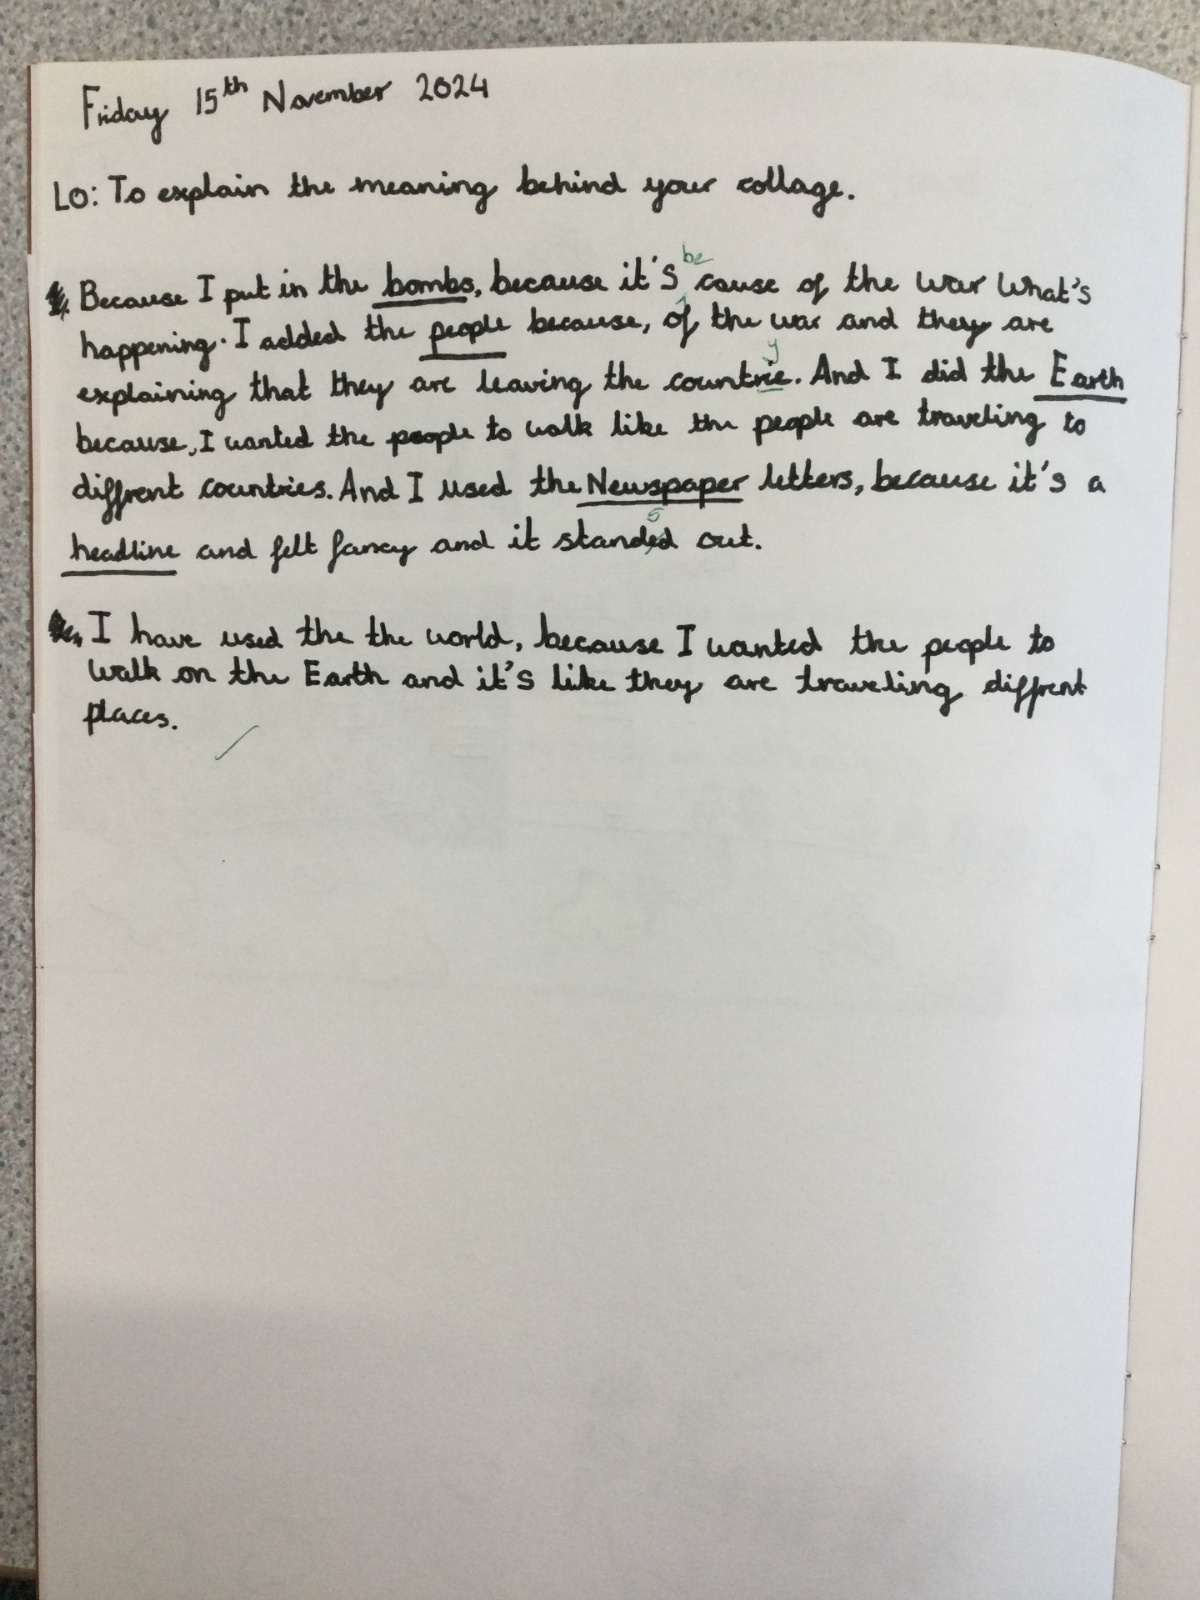 Friday 15th November 2024
LO: To explain the meaning behind your collage.
be
Because I put in the bombs, because it's cause of the war What's
happening. I added the people because, of the war and they are
y
explaining that they are leaving the countrie. And I did the Earth
because, I wanted the people to walk like the people are traveling to
diffrent countries. And I used the Newspaper letters, because it's a
s
headline and felt fancy and it standed out.
I have used the the world, because I wanted the people to
walk on the Earth and it's like they are traveling diffrent
places.